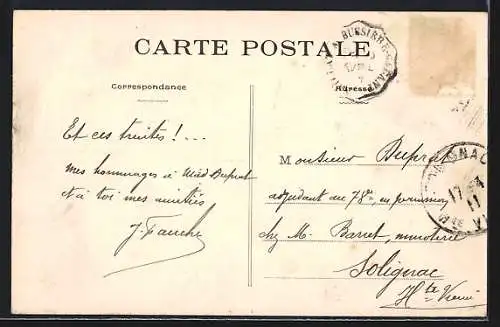 CARTE POSTALE
Correspondance
Adresse
BUSSIERE-GALANT
Et ces truites ! ...
mes hommages à Mad Duprat
et à toi mes amitiés
J. Fauche
Monsieur Duprat
adjudant au 78e, en permission
chez M. Barret, minoterie
Solignac
Hte Vienne
SOLIGNAC
17
11
Hte VI